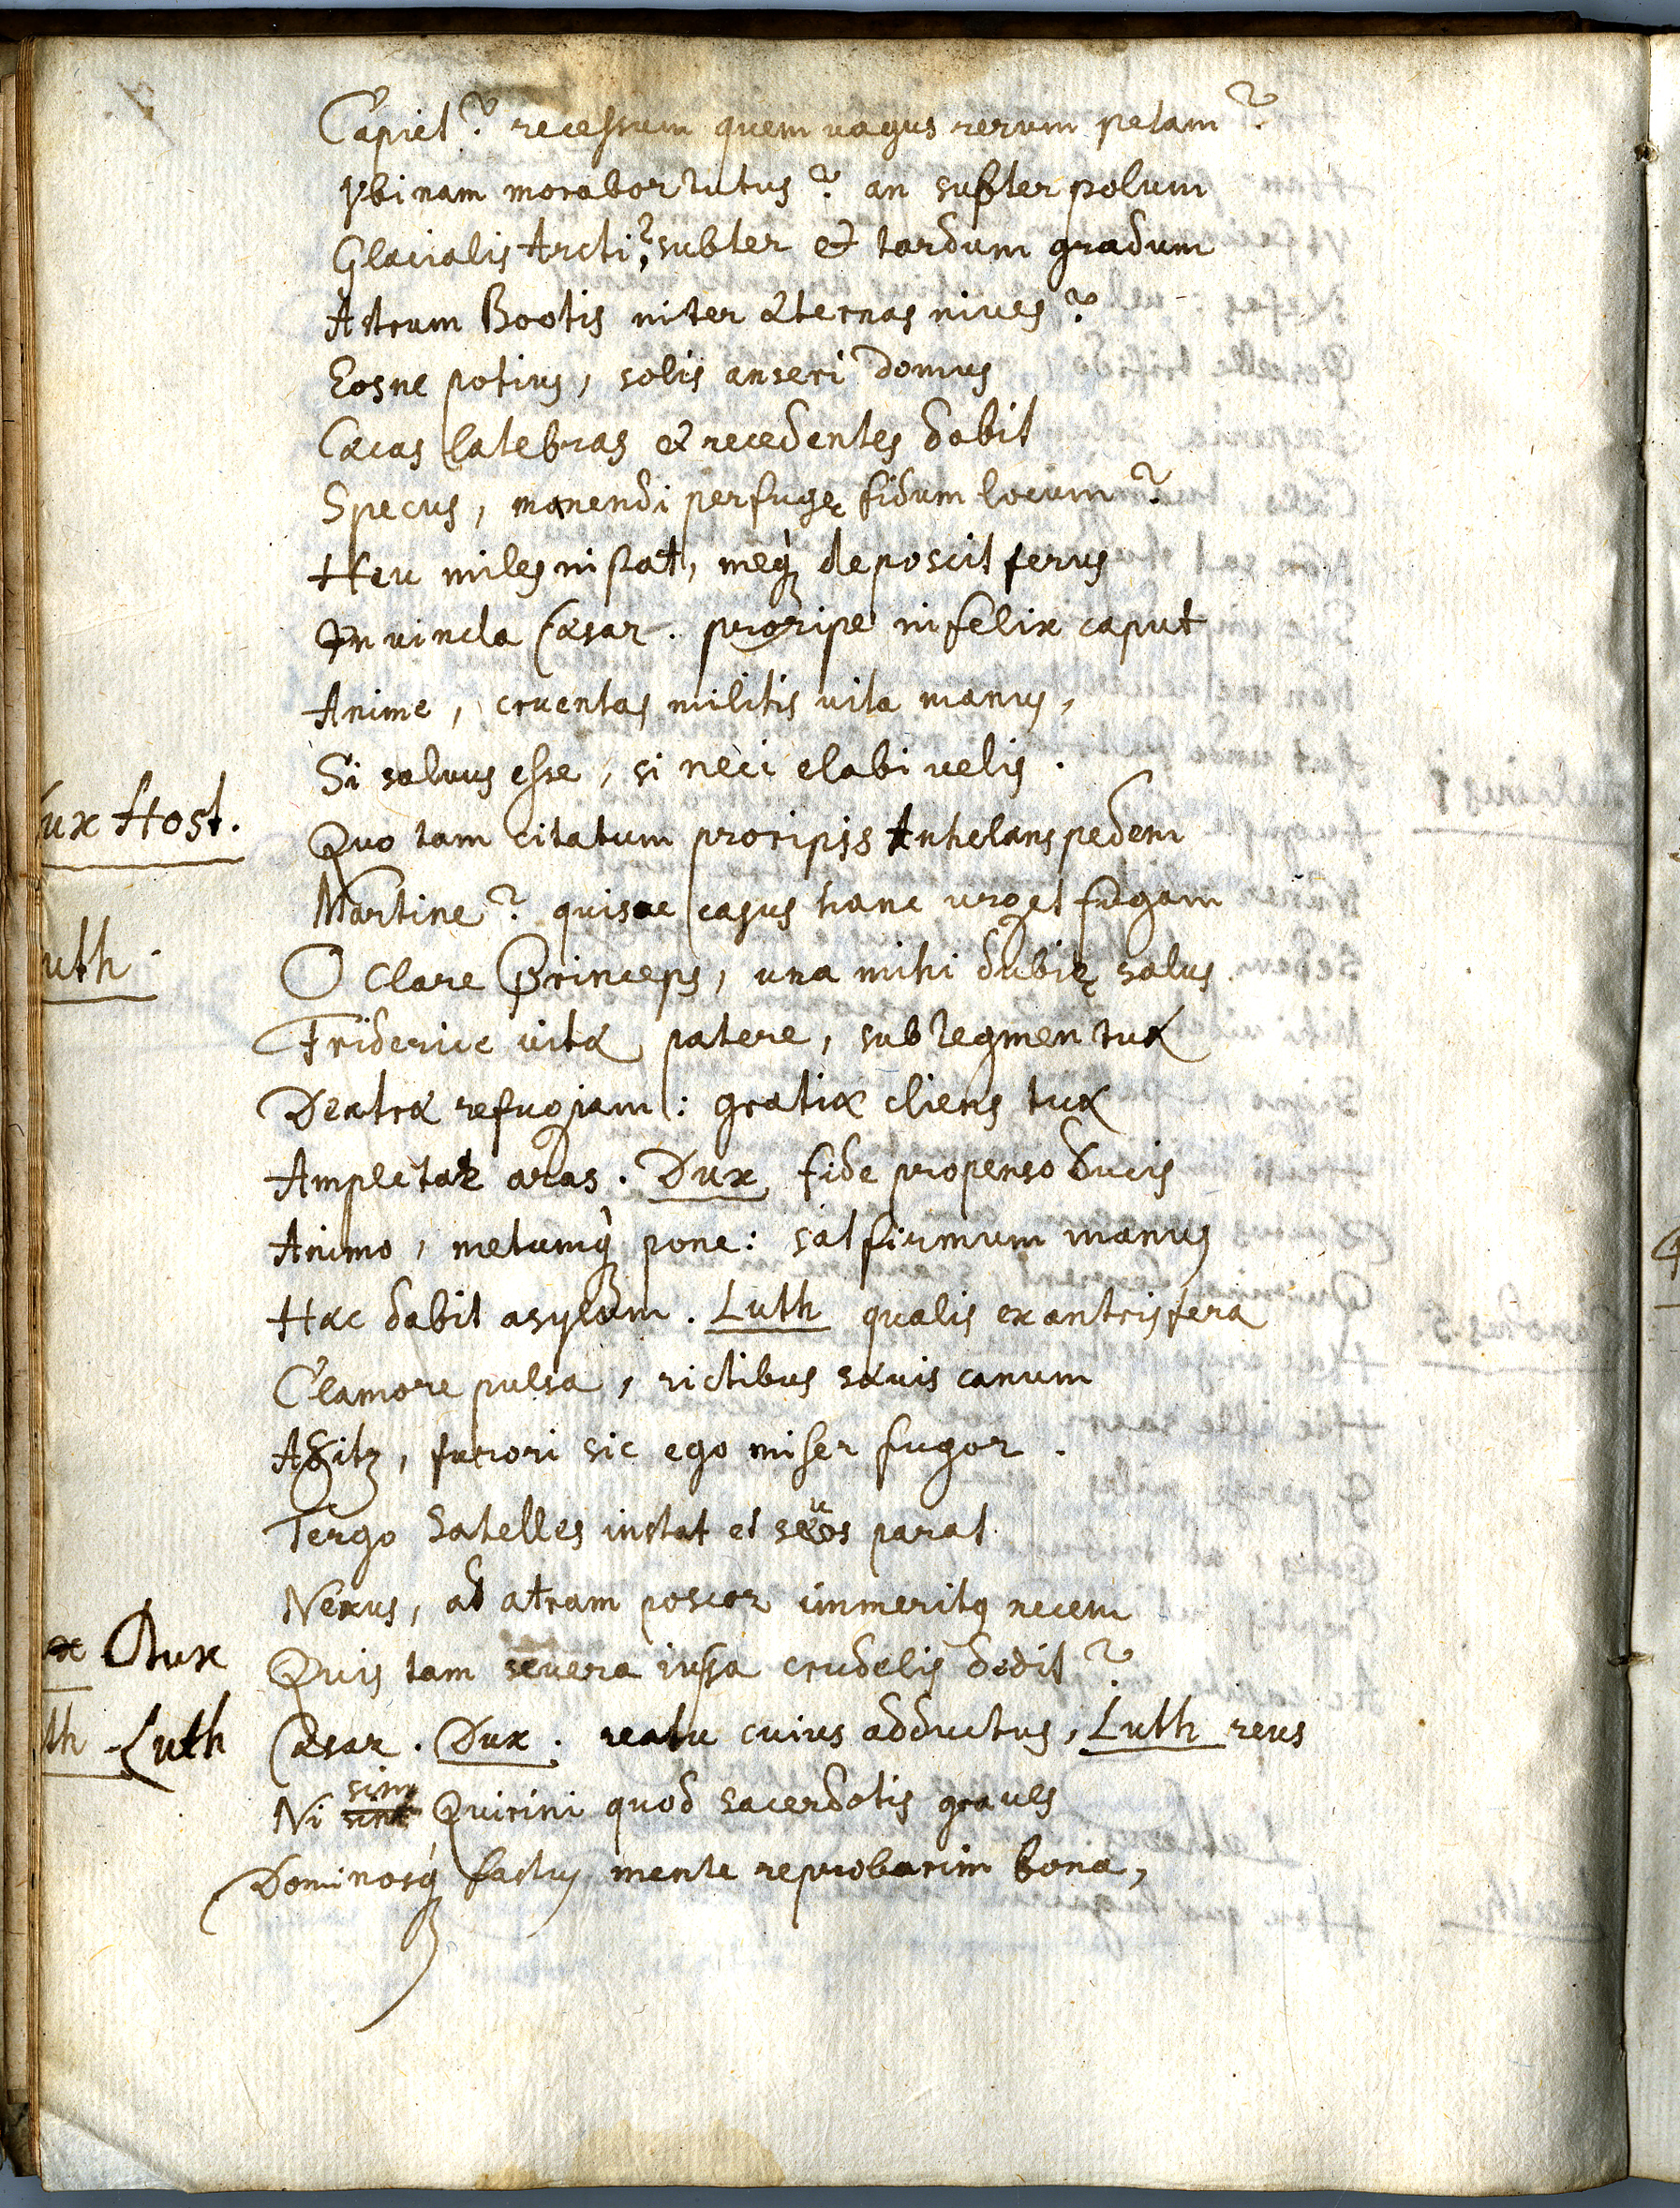 Capiet? recessum quem vagus rerum petam?
Vbinam morabor tutus? an subter polum
Glacialis Arcti? subter et tardum gradum
Astrum Bootis inter æternas nives?
Eosne potius, solis anseri domus
Cæcas latebras et recedentes dabit
Specus, manendi perfugę fidum locum?
Heu miles instat, meq́ꝫ deposcit ferus
In vincla Cæsar. proripe infelix caput
Anime, cruentas militis vita manus,
Si salvus esse, si neci elabi velis.
ux Host. Quo tam citatum proripis Anhelans pedem
Martine? quisve casus hanc urget fugam
uth. O Clare Princeps, una mihi dubię salus
Friderice vitæ patere, sub tegmen tuæ
Dextræ refugiam: gratiæ cliens tuæ
Amplectar aras. Dux fide propenso Ducis
Animo, metumq́ꝫ pone: sat firmum manus
Hæc dabit asylum. Luth qualis ex antris fera
Clamore pulsa, rictibus sævis canum
Agitꝫ, furori sic ego miser fugor.
Tergo Satelles instat et sæuos parat
Nexus, ad atram poscor immeritq necem
x Dux Quis tam severa iussa crudelis dedit?
th Luth Cæsar. Dux. reatu cuius adductus, Luth reus
Ni sim Quirini quod sacerdotis graves
Dominosq́ꝫ fastus mente reprobarim bona,